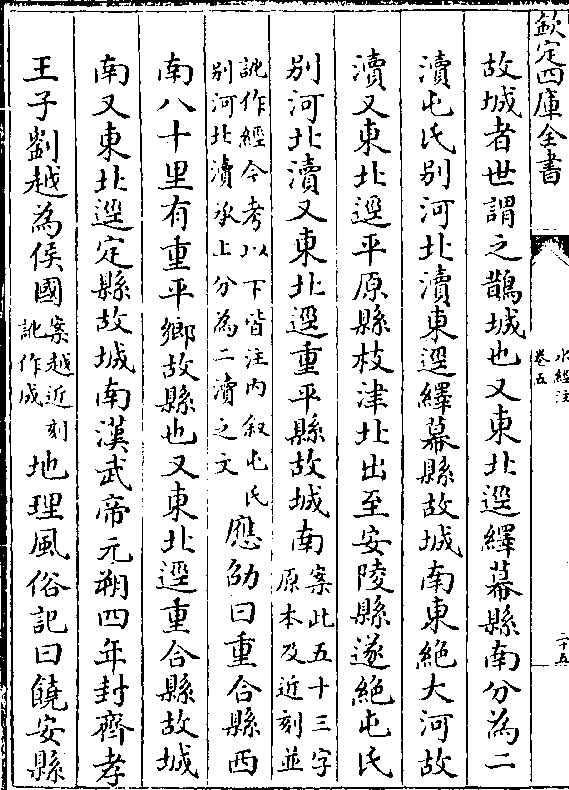 欽定四庫全書
水經注
卷五
二十五
故城者世謂之鵲城也又東北逕繹幕縣南分為二
瀆屯氏别河北瀆東逕繹幕縣故城南東絶大河故
瀆又東北逕平原縣枝津北出至安陵縣遂絶屯氏
别河北瀆又東北逕重平縣故城南案此五十三字原本及近刻並
訛作經今考以下皆注内叙屯氏别河北瀆承上分為二瀆之文應劭曰重合縣西
南八十里有重平鄉故縣也又東北逕重合縣故城
南又東北逕定縣故城南漢武帝元朔四年封齊孝
王子劉越為侯國案越近刻訛作成地理風俗記曰饒安縣